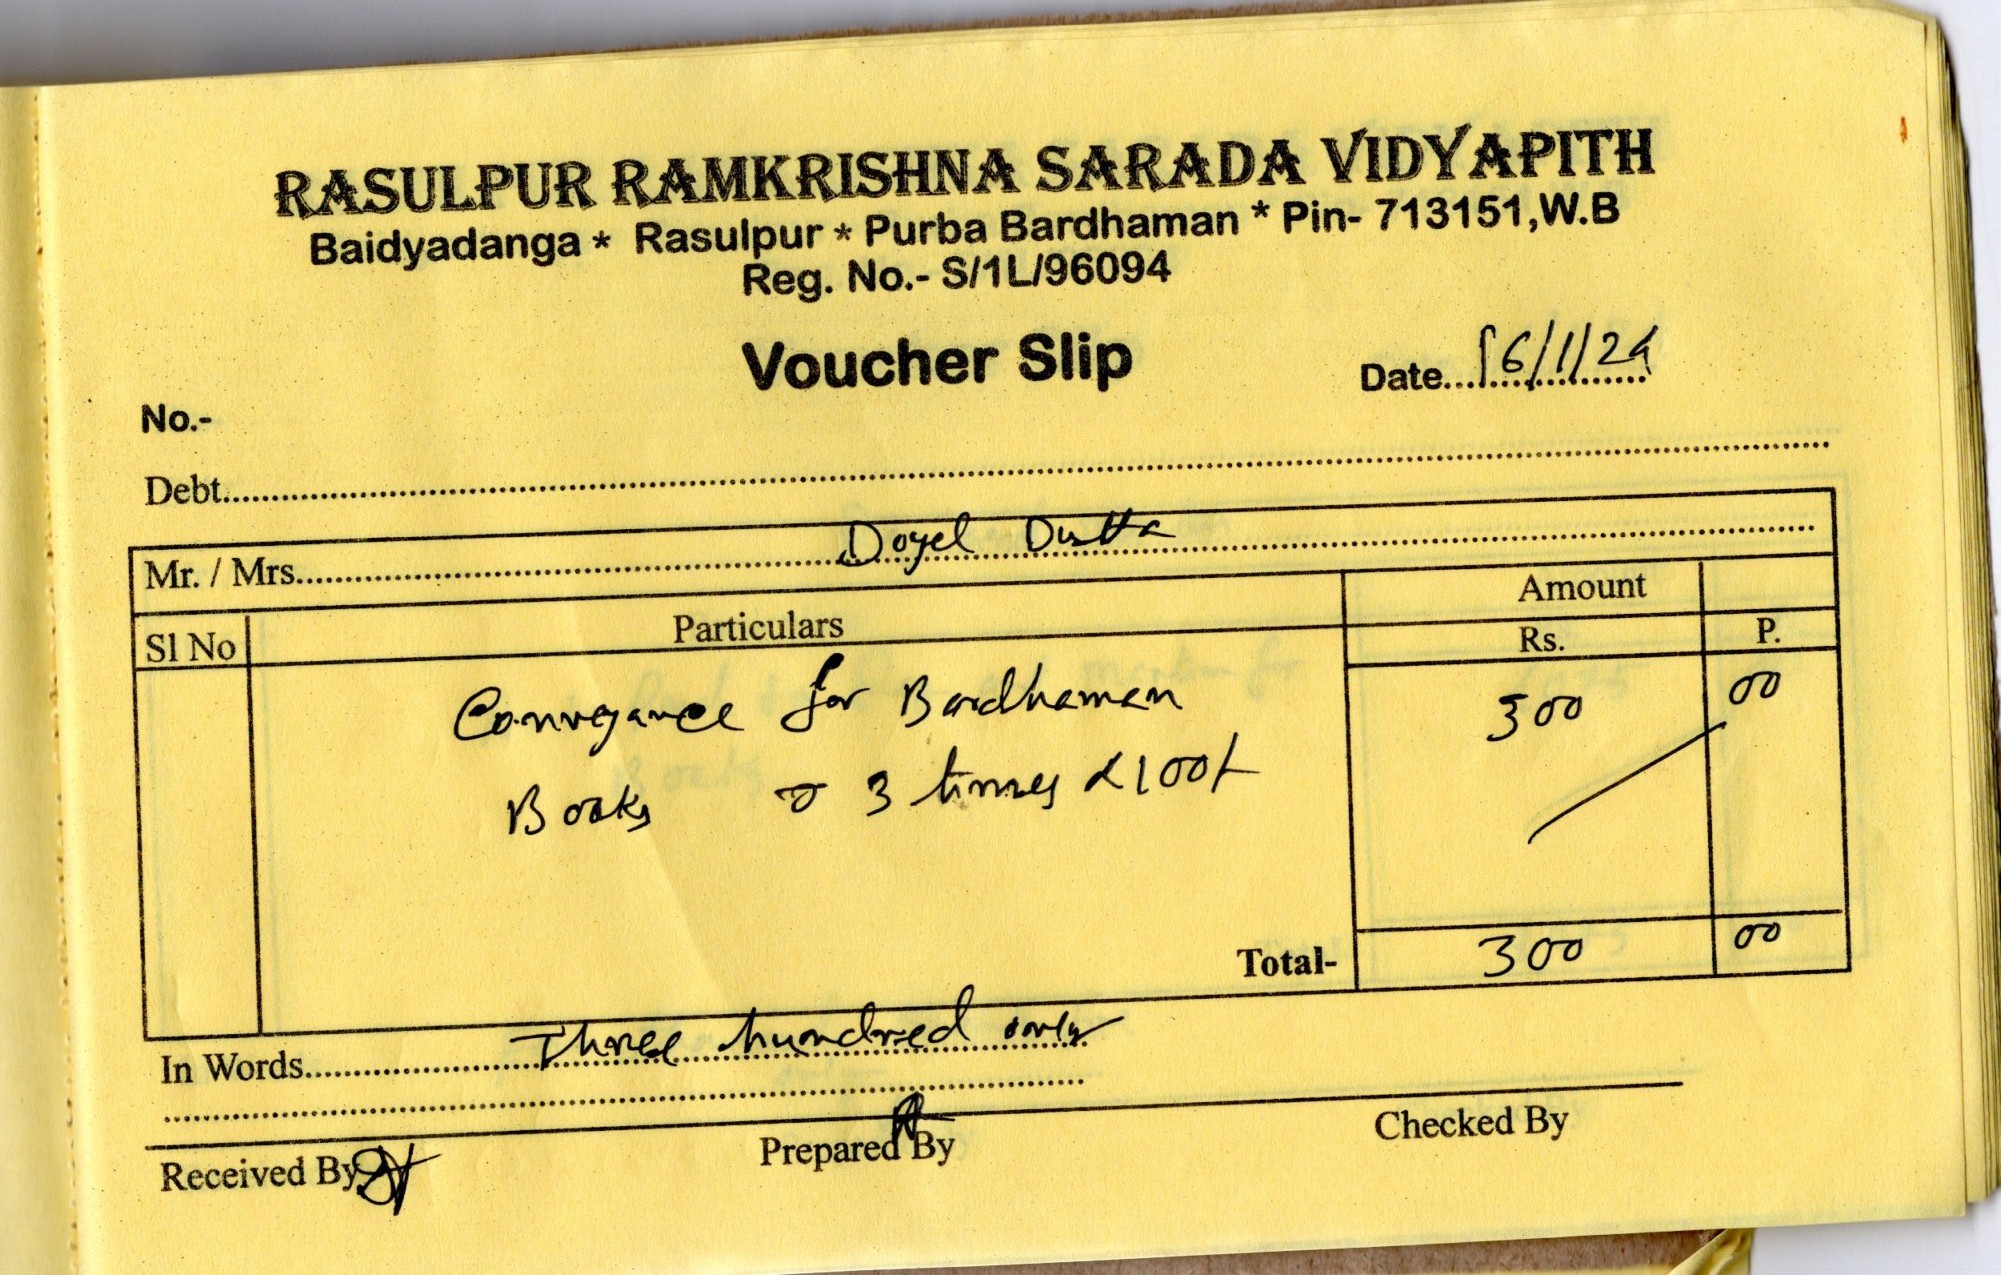 RASULPUR RAMKRISHNA SARADA VIDYAPITH
Baidyadanga * Rasulpur * Purba Bardhaman * Pin- 713151,W.B
Reg. No.- S/1L/96094
Voucher Slip
Date 16/1/24
No.-
Debt
Mr. / Mrs. Doyel Dutta
Sl No Particulars Amount
Rs. P.
Conveyance for Bardhaman 300 00
Books 3 times 100/-
Total- 300 00
In Words Three hundred only
Received By Prepared By Checked By